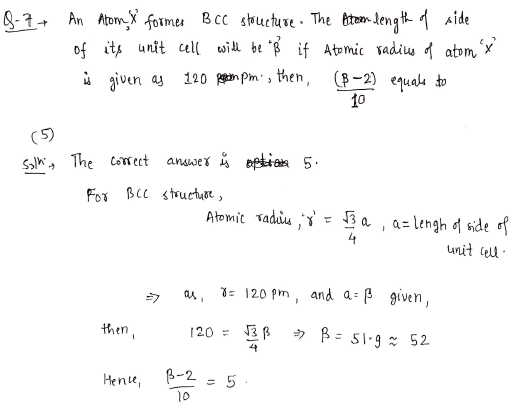 Q-7→ An Atom 'X' formes BCC structure. The length of side
of its unit cell will be 'β' if Atomic radius of atom 'X'
is given as 120 pm., then, (β-2)/10 equals to
(5)
Solⁿ:→ The correct answer is option 5.
For BCC structure,
Atomic radius, 'r' = √3/4 a, a = lengh of side of
unit cell.
⇒ as, r = 120 pm, and a = β given,
then, 120 = √3/4 β ⇒ β = 51.9 ≈ 52
Hence, β-2/10 = 5.